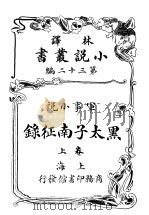 林譯
小說叢書
第三十二編
軍事小說
黑太子南征錄
卷上
上海
商務印書館發行